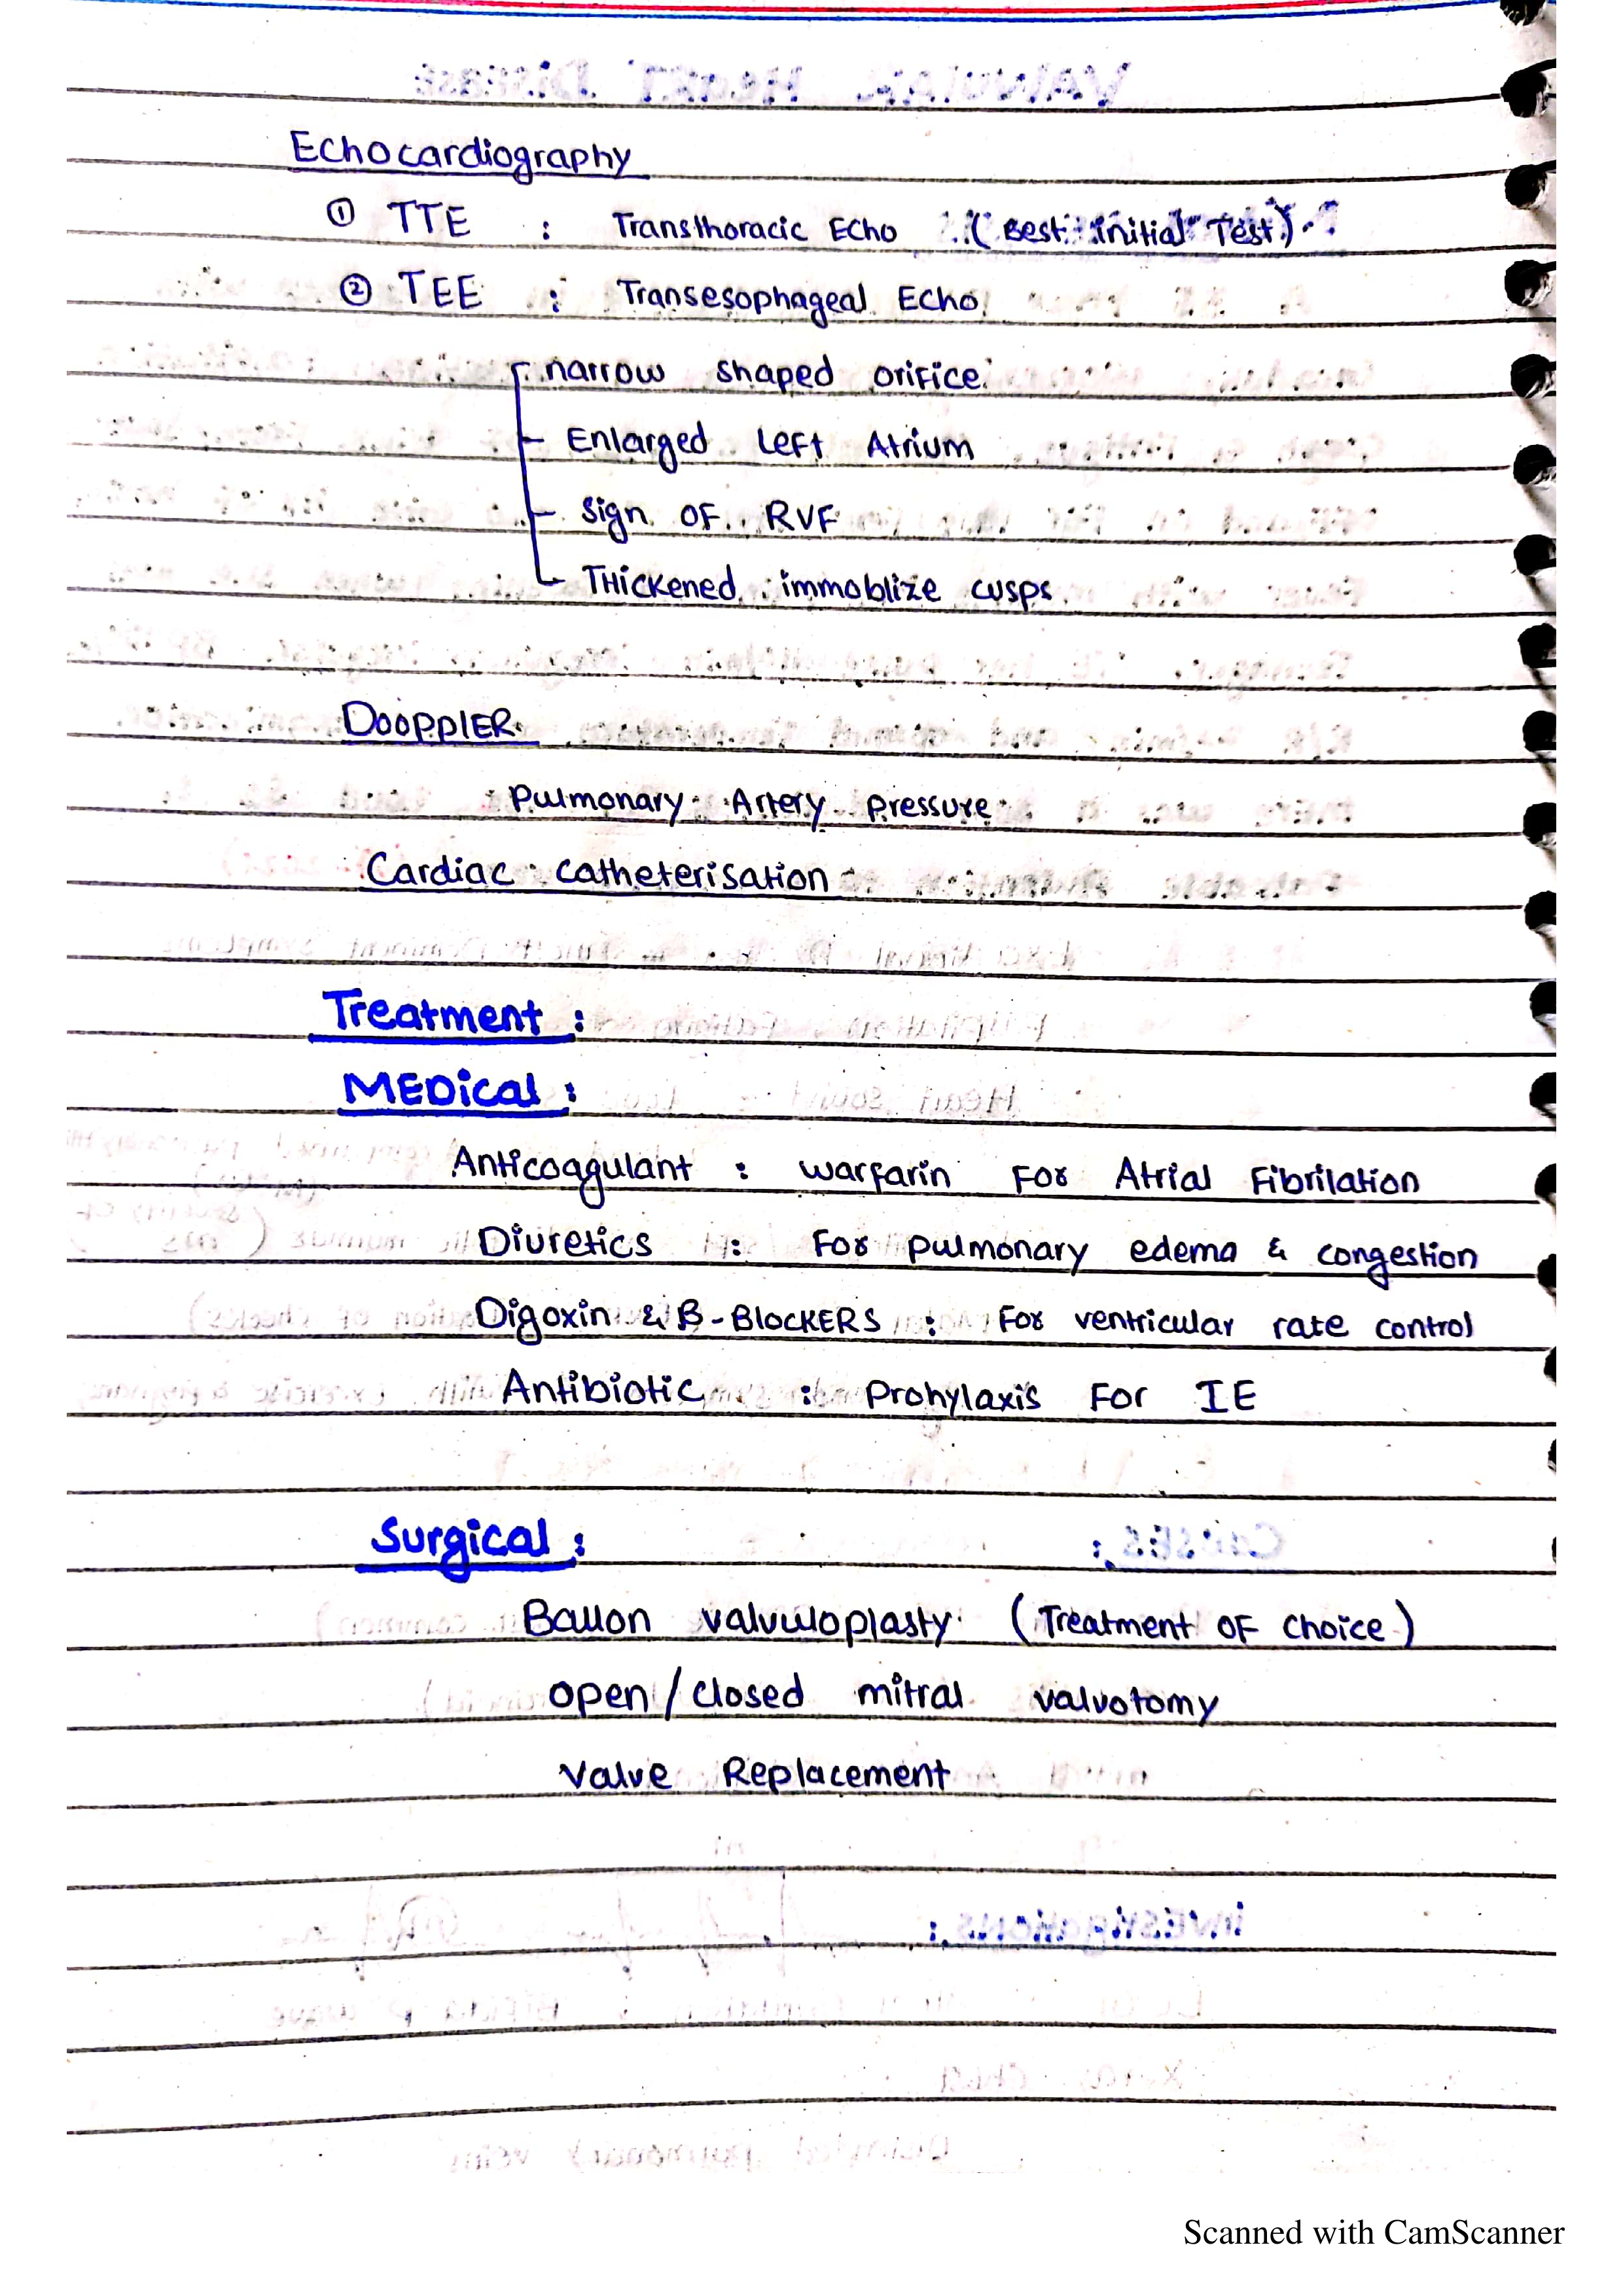 Echocardiography
① TTE : Transthoracic Echo (Best initial Test)
② TEE : Transesophageal Echo
narrow shaped orifice
Enlarged Left Atrium
Sign OF RVF
Thickened immoblize cusps
Dooppler
Pulmonary Artery Pressure
Cardiac catheterisation
Treatment :
MEDical :
Anticoagulant : warfarin For Atrial Fibrilation
Diuretics : For pulmonary edema & congestion
Digoxin & B-BlocKERS : For ventricular rate control
Antibiotic : Prohylaxis For IE
Surgical :
Ballon valvuloplasty (Treatment OF choice)
open/closed mitral valvotomy
Valve Replacement
Scanned with CamScanner